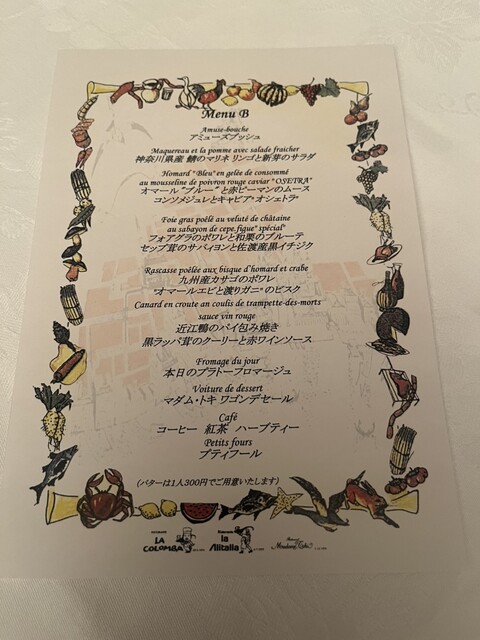 Menu B
Amuse-bouche
アミューズブッシュ
Maquereau et la pomme avec salade fraicher
神奈川県産 鯖のマリネ リンゴと新芽のサラダ
Homard "Bleu" en gelée de consommé
au mousseline de poivron rouge caviar "OSETRA"
オマール"ブルー"と赤ピーマンのムース
コンソメジュレとキャビア"オシェトラ"
Foie gras poêlé au veluté de châtaine
au sabayon de cepe, figue" spécial"
フォアグラのポワレと和栗のブルーテ
セップ茸のサバイヨンと佐渡産黒イチジク
Rascasse poêlée aux bisque d'homard et crabe
九州産カサゴのポワレ
"オマールエビと渡りガニ"のビスク
Canard en croute an coulis de trampette-des-morts
sauce vin rouge
近江鴨のパイ包み焼き
黒ラッパ茸のクーリーと赤ワインソース
Fromage du jour
本日のプラトーフロマージュ
Voiture de dessert
マダム・トキ ワゴンデセール
Café
コーヒー 紅茶 ハーブティー
Petits fours
プティフール
(バターは1人300円でご用意いたします)
LA COLOMBA
la Alitalia
Madame Toki